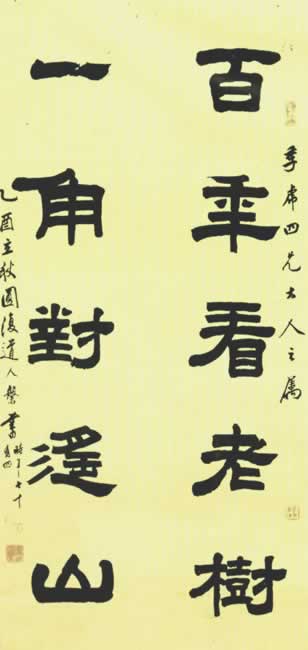 季四兄大人之屬
百年看老樹
一角對遙山
乙酉立秋道人書
時年七十
有四